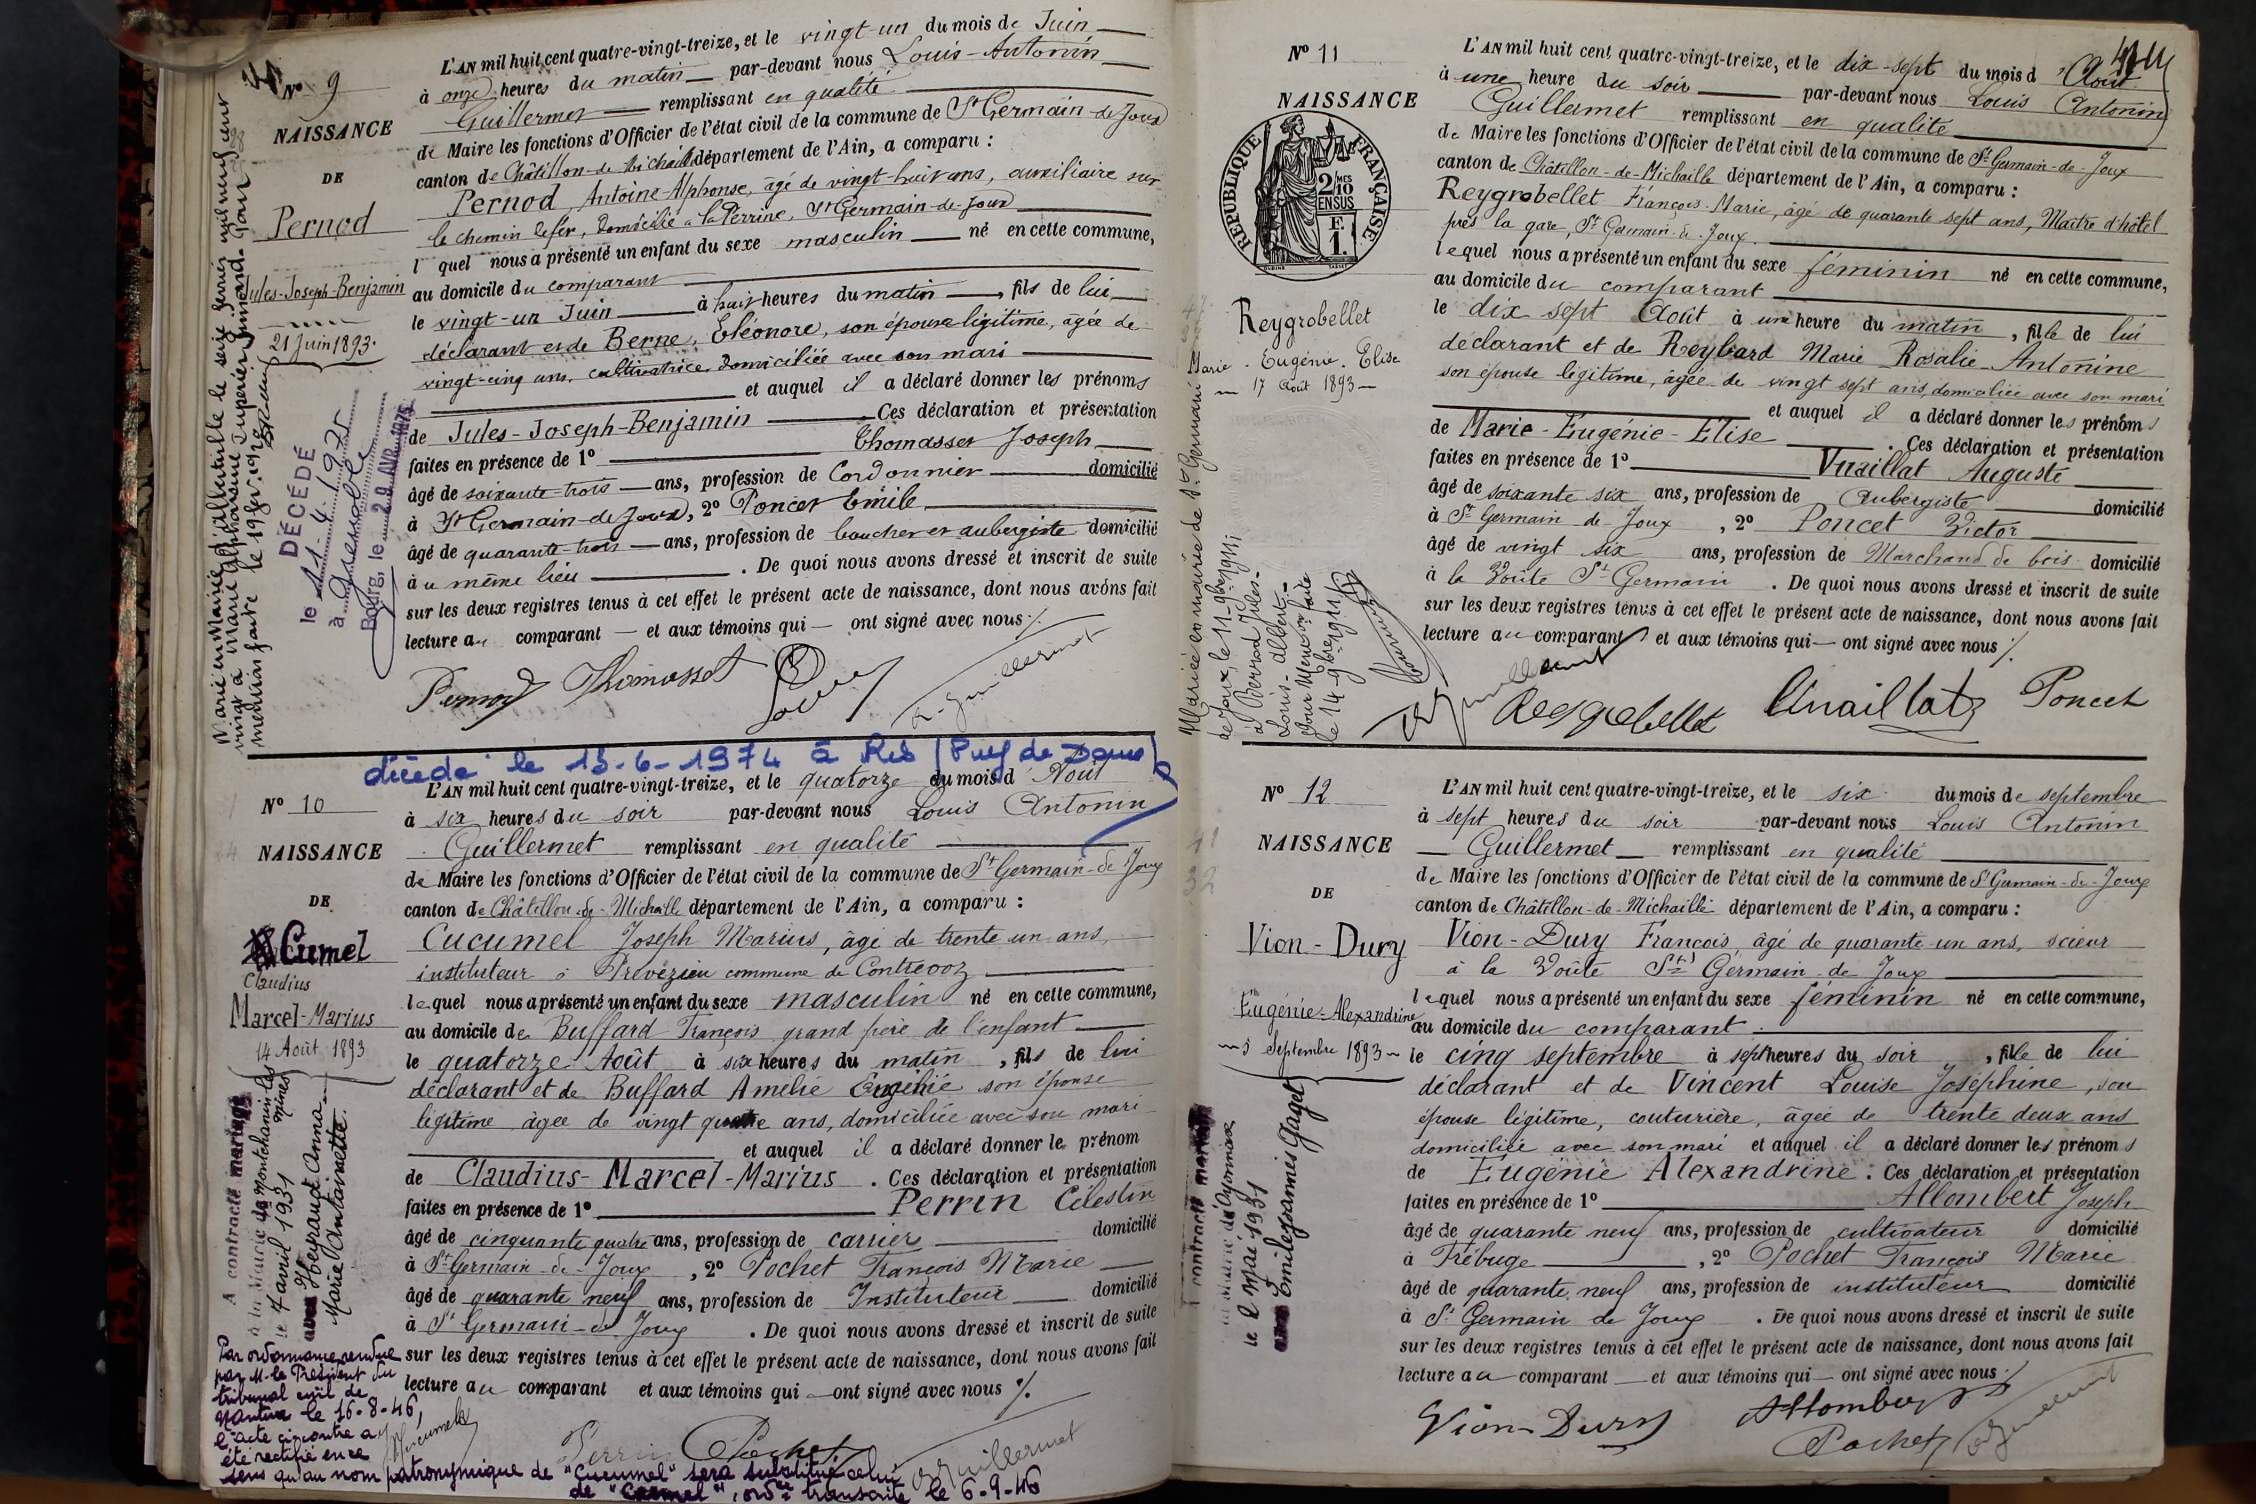 Nº 9
NAISSANCE
DE
Pernod
Jules-Joseph-Benjamin
21 Juin 1893.
L'AN mil huit cent quatre-vingt-treize, et le vingt-un du mois de Juin
à onze heures du matin par-devant nous Louis-Antonin
Guillermet remplissant en qualité
de Maire les fonctions d'Officier de l'état civil de la commune de St Germain-de-Joux
canton de Châtillon-de-Michaille département de l'Ain, a comparu :
Pernod, Antoine-Alphonse, âgé de vingt-huit ans, auxiliaire sur
le chemin de fer, domicilié à la Perrine, St Germain-de-Joux
l quel nous a présenté un enfant du sexe masculin né en cette commune,
au domicile du comparant
le vingt-un Juin à huit heures du matin, fils de lui
déclarant et de Berne, Eléonore, son épouse légitime, âgée de
vingt-cinq ans, cultivatrice, domiciliée avec son mari
et auquel il a déclaré donner les prénoms
de Jules-Joseph-Benjamin Ces déclaration et présentation
faites en présence de 1º Thomasset Joseph
âgé de soixante-trois ans, profession de Cordonnier domicilié
à St Germain-de-Joux, 2º Poncet Emile
âgé de quarante-trois ans, profession de boucher et aubergiste domicilié
au même lieu. De quoi nous avons dressé et inscrit de suite
sur les deux registres tenus à cet effet le présent acte de naissance, dont nous avons fait
lecture au comparant et aux témoins qui ont signé avec nous ./.
Pernod Thomasset
A. Guillermet
Marié en Mairie d'
le seize février mil neuf cent
vingt à Marie Alphonsine
mention faite le 19 fév. 1920
DÉCÉDÉ
le 11-4-1975
à Grenoble
Bourg, le 29 AVR 1975
décédé le 13-6-1974 à Ris (Puy de Dôme)
Nº 10
NAISSANCE
DE
Cumel
Claudius
Marcel-Marius
14 Août 1893
L'AN mil huit cent quatre-vingt-treize, et le quatorze du mois d'Août
à six heures du soir par-devant nous Louis Antonin
Guillermet remplissant en qualité
de Maire les fonctions d'Officier de l'état civil de la commune de St Germain-de-Joux
canton de Châtillon-de-Michaille département de l'Ain, a comparu :
Cucumel Joseph Marius, âgé de trente un ans,
instituteur à Prévezieu commune de Contrevoz
lequel nous a présenté un enfant du sexe masculin né en cette commune,
au domicile de Buffard François grand père de l'enfant
le quatorze Août à six heures du matin, fils de lui
déclarant et de Buffard Amélie Eugénie son épouse
légitime âgée de vingt quatre ans, domiciliée avec son mari
et auquel il a déclaré donner le prénom
de Claudius-Marcel-Marius. Ces déclaration et présentation
faites en présence de 1º Perrin Célestin
âgé de cinquante quatre ans, profession de carrier domicilié
à St Germain-de-Joux, 2º Pochet François Marie
âgé de quarante neuf ans, profession de Instituteur domicilié
à St Germain-de Joux. De quoi nous avons dressé et inscrit de suite
sur les deux registres tenus à cet effet le présent acte de naissance, dont nous avons fait
lecture au comparant et aux témoins qui ont signé avec nous ./.
Perrin Pochet A. Guillermet
Cucumel
A contracté mariage
à la Mairie de Montchanin les mines
le 4 avril 1931
avec Heyraud Anna
Marie Antoinette.
Par ordonnance rendue
par M. le Président du
tribunal civil de
Nantua le 16-8-46,
l'acte ci-contre a
été rectifié en ce
sens qu'au nom patronymique de "Cucumel" sera substitué celui
de "Cumel", ord. transcrite le 6-9-46
Nº 11
NAISSANCE
RÉPUBLIQUE FRANÇAISE
2/10 MES
EN SUS
F.
1.
Reygrobellet
Marie-Eugénie-Elise
17 Août 1893
L'AN mil huit cent quatre-vingt-treize, et le dix-sept du mois d'Août
à une heure du soir par-devant nous Louis Antonin
Guillermet remplissant en qualité
de Maire les fonctions d'Officier de l'état civil de la commune de St Germain-de-Joux
canton de Châtillon-de-Michaille département de l'Ain, a comparu :
Reygrobellet François-Marie, âgé de quarante sept ans, Maître d'hôtel
près la gare, St Germain-de-Joux.
lequel nous a présenté un enfant du sexe féminin né en cette commune,
au domicile du comparant
le dix sept Août à une heure du matin, fille de lui
déclarant et de Reybard Marie Rosalie-Antonine
son épouse légitime, âgée de vingt sept ans, domiciliée avec son mari
et auquel il a déclaré donner les prénoms
de Marie-Eugénie-Elise. Ces déclaration et présentation
faites en présence de 1º Vuaillat Auguste
âgé de soixante six ans, profession de Aubergiste domicilié
à St Germain de Joux, 2º Poncet Victor
âgé de vingt six ans, profession de Marchand de bois domicilié
à la Voûte St Germain. De quoi nous avons dressé et inscrit de suite
sur les deux registres tenus à cet effet le présent acte de naissance, dont nous avons fait
lecture au comparant et aux témoins qui ont signé avec nous ./.
A. Guillermet Reygrobellet Vuaillat Poncet
Mariée en mairie de St Germain
de Joux, le 11-9bre 1911
à Berrod Jules-
Louis-Albert.
Pour Mention faite
le 14-9bre 1911
Nº 12
NAISSANCE
DE
Vion-Dury
Eugénie-Alexandrine
5 Septembre 1893
L'AN mil huit cent quatre-vingt-treize, et le six du mois de septembre
à sept heures du soir par-devant nous Louis Antonin
Guillermet remplissant en qualité
de Maire les fonctions d'Officier de l'état civil de la commune de St Germain-de-Joux
canton de Châtillon-de-Michaille département de l'Ain, a comparu :
Vion-Dury François, âgé de quarante un ans, scieur
à la Voûte St Germain-de Joux
lequel nous a présenté un enfant du sexe féminin né en cette commune,
au domicile du comparant.
le cinq septembre à sept heures du soir, fille de lui
déclarant et de Vincent Louise Joséphine, son
épouse légitime, couturière, âgée de trente deux ans
domiciliée avec son mari et auquel il a déclaré donner les prénoms
de Eugénie Alexandrine. Ces déclaration et présentation
faites en présence de 1º Allombert Joseph
âgé de quarante neuf ans, profession de cultivateur domicilié
à Trébuge, 2º Pochet François Marie
âgé de quarante neuf ans, profession de instituteur domicilié
à St Germain de Joux. De quoi nous avons dressé et inscrit de suite
sur les deux registres tenus à cet effet le présent acte de naissance, dont nous avons fait
lecture au comparant et aux témoins qui ont signé avec nous ./.
Vion-Dury Allombert
Pochet A. Guillermet
A contracté mariage
à la mairie d'Oyonnax
le 2 Mai 1931
avec Emile Jeannes Gaget